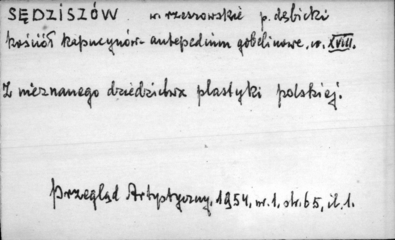 SĘDZISZÓW w rzeszowskie p. dębicki
kościół kapucynów - antepedium gobelinowe, w. XVIII.
Z nieznanego dziedzictwa plastyki polskiej.
Przegląd Artystyczny, 1954, nr. 1, str. 65, il. 1.